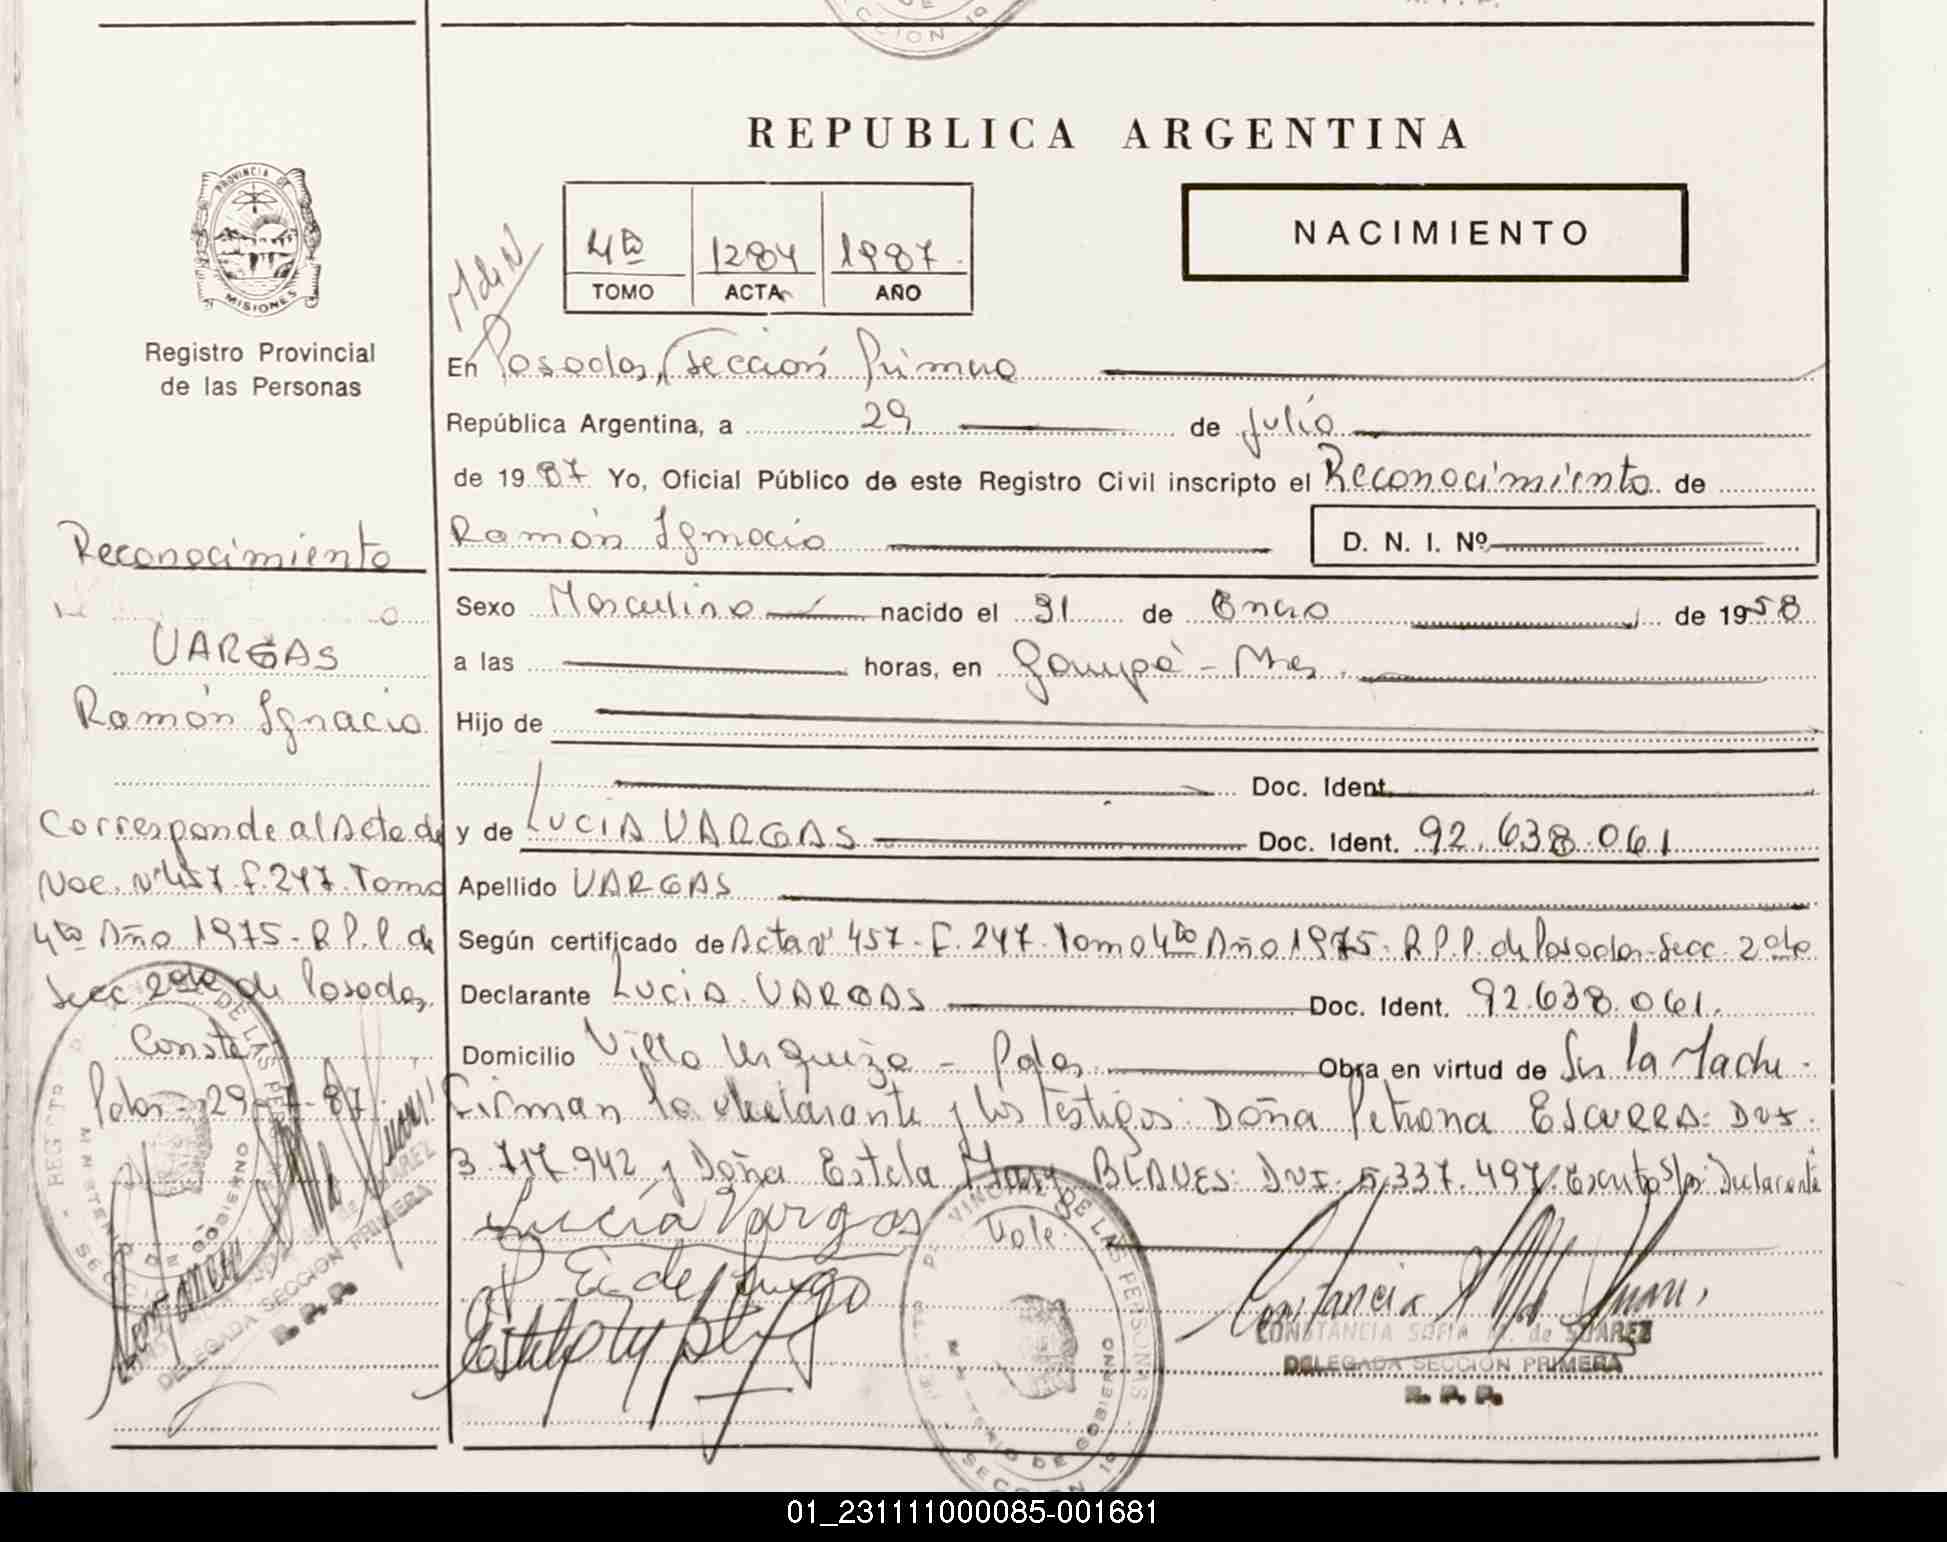 REPUBLICA ARGENTINA
NACIMIENTO
4to 1284 1987
TOMO ACTA AÑO
MdeN
PROVINCIA DE MISIONES
Registro Provincial
de las Personas
En Posadas, Sección Primera
República Argentina, a 29 de julio
de 1987 Yo, Oficial Público de este Registro Civil inscripto el Reconocimiento de
Ramón Ignacio D. N. I. Nº
Sexo Masculino nacido el 31 de Enero de 1958
a las horas, en Garupá - Mnes.
Hijo de
Doc. Ident.
y de LUCIA VARGAS Doc. Ident. 92.638.061
Apellido VARGAS
Según certificado de Acta nº 457. F. 247. Tomo 4to Año 1975. R.P.P. de Posadas-Secc. 2da
Declarante LUCIA VARGAS Doc. Ident. 92.638.061.
Domicilio Villa Urquiza - Pdas. Obra en virtud de Ser la Madre.
Firman la declarante y los testigos: Doña Petrona ESCURRA: DNI.
3.717.942 y Doña Estela Mary BLAVES: DNI. 5.337.497. Escrito S/p: Declarante
Vale.
Lucía Vargas
CONSTANCIA SOFIA M. de SUAREZ
DELEGADA SECCION PRIMERA
R. P. P.
Reconocimiento
VARGAS
Ramón Ignacio
Corresponde al Acta de
Nac. Nº 457. F. 247. Tomo
4to Año 1975- R.P.P. de
Secc 2da de Posadas,
Conste
Pdas - 29-7-87.
DELEGADA SECCION PRIMERA
R. P. P.
MINISTERIO DE GOBIERNO
01_231111000085-001681